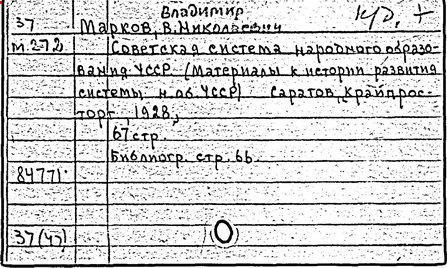 Владимир кр. +
37 Марков, В. Николаевич
М.272 Советская система народного образо-
вания УССР (Материалы к истории развития
системы н. об УССР) Саратов, Крайпрос-
торг, 1928,
67 стр.
Библиогр. стр. 66.
84771
37(47)